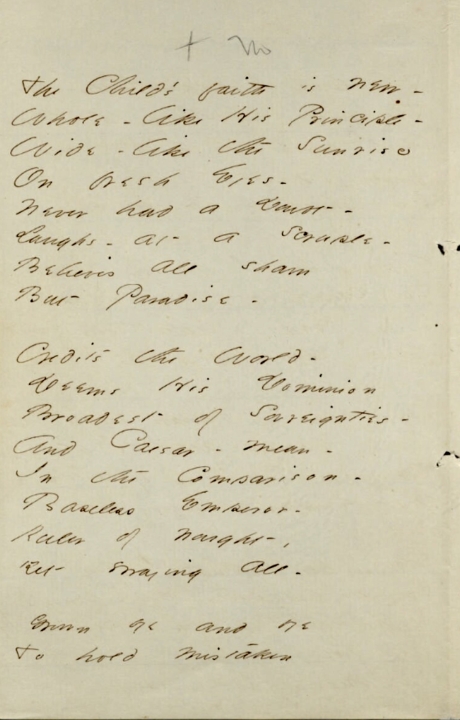 + No
The Child's faith is new -
Whole - like His Principle -
Wide - like the Sunrise
On fresh Eyes -
Never had a Doubt -
Laughs - at a Scruple -
Believes all sham
But Paradise -
Credits the World -
Deems His Dominion
Broadest of Sovreignties -
And Caesar - mean -
In the Comparison -
Baseless Emperor -
Ruler of Nought -,
Yet swaying all -
Grown bye and bye
To hold mistaken